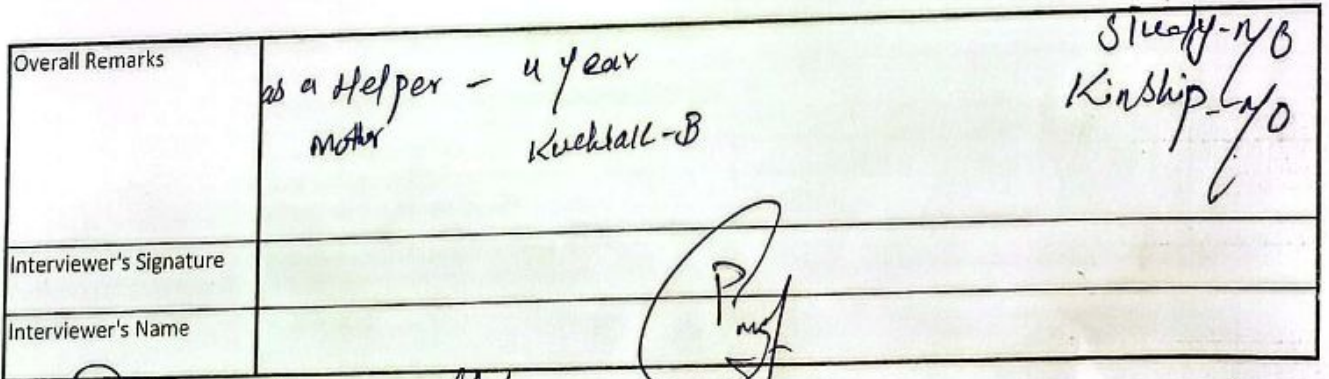 Overall Remarks
as a Helper - 4 year
mother
Study - N/O
Kinship - N/O
Interviewer's Signature
Interviewer's Name